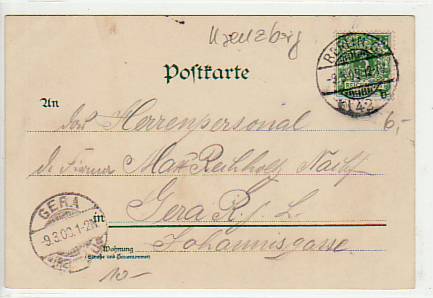 Kreuzberg
Postkarte
BERLIN
-9.3.00.12-1N
42
An
das Herrenpersonal
6,-
de Firma Max Reichhold Nachf
GERA
-9.3.00.1-2N
in
Gera R. j. L.
Wohnung
(Straße und Hausnummer)
Johannisgasse
10-